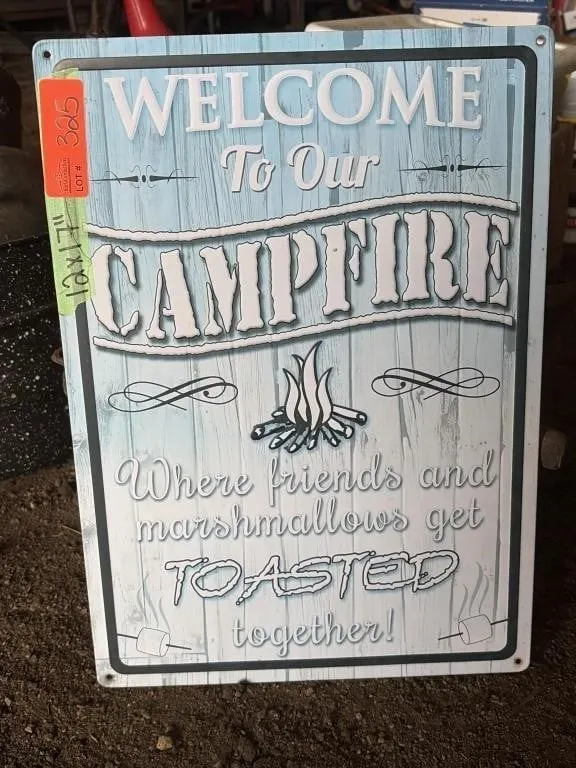 WELCOME
To Our
CAMPFIRE
Where friends and
marshmallows get
TOASTED
together!
LOT #
325
12x17"